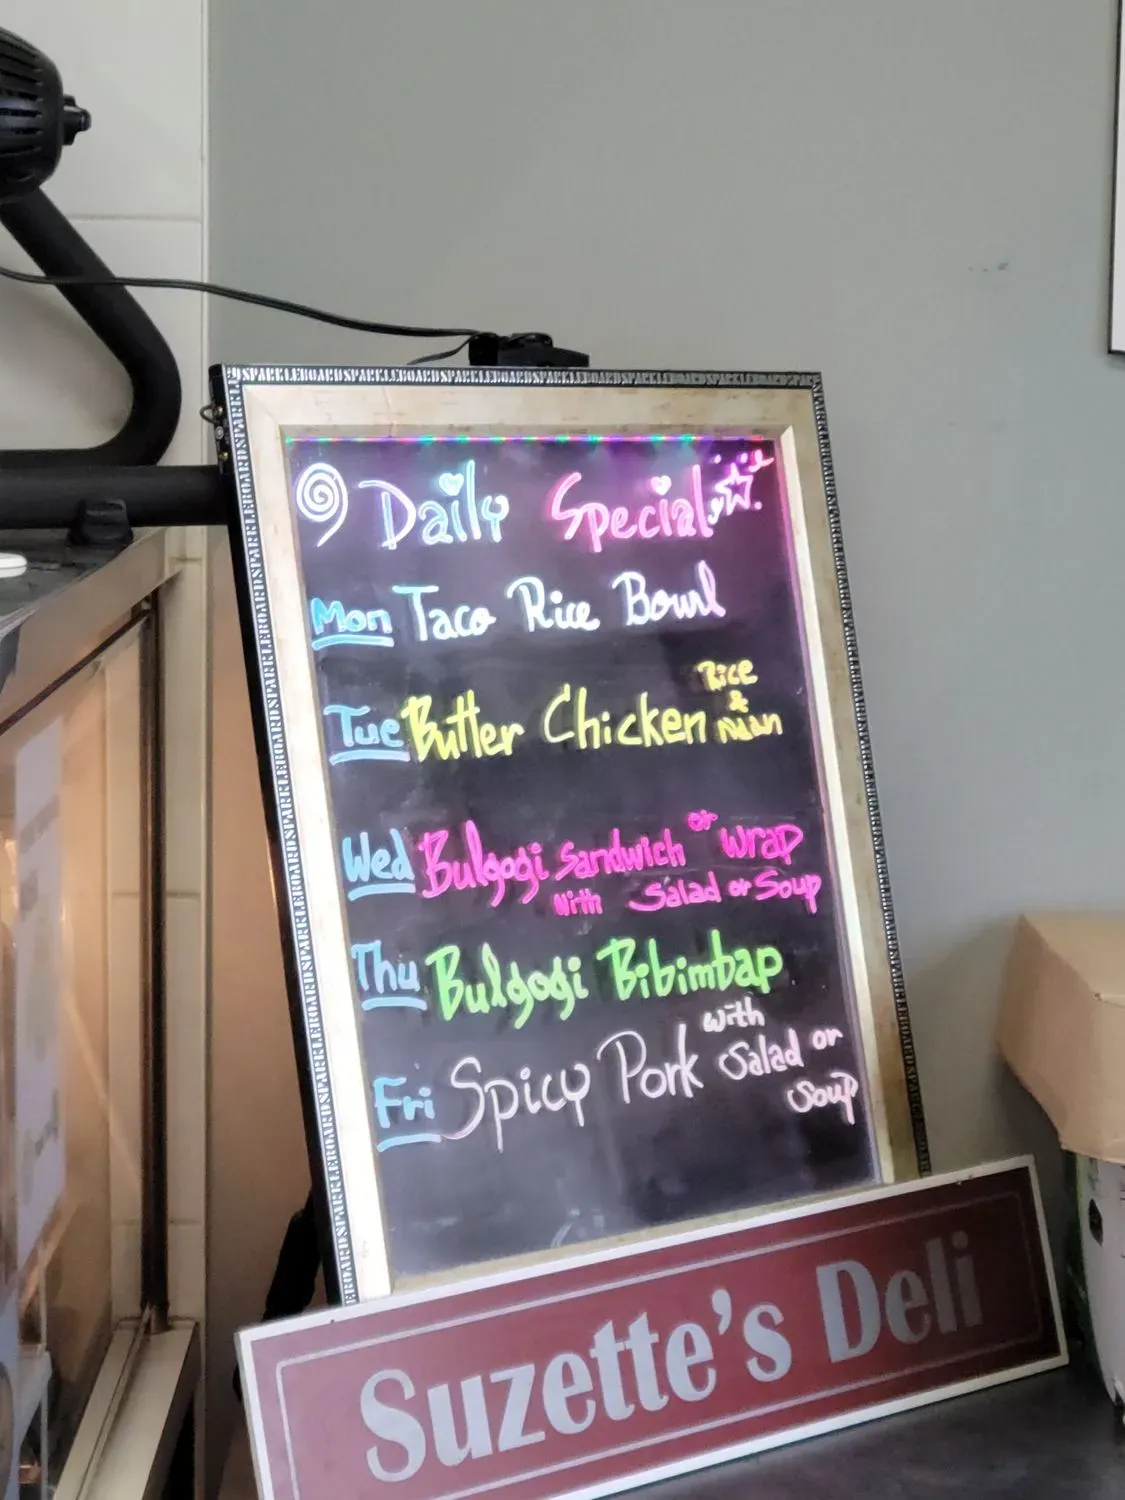 Daily Special
Mon Taco Rice Bowl
Tue Butter Chicken Rice & Nan
Wed Bulgogi Sandwich or Wrap
With Salad or Soup
Thu Bulgogi Bibimbap
Fri Spicy Pork with Salad or Soup
SPARKLEBOARD SPARKLEBOARD SPARKLEBOARD SPARKLEBOARD SPARKLEBOARD SPARKLEBOARD
Suzette's Deli